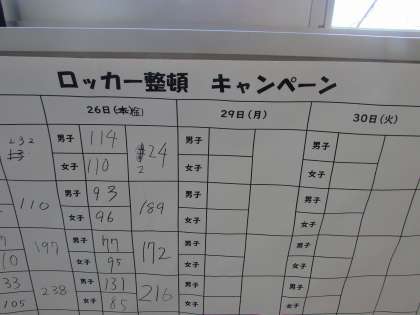 ロッカー整頓 キャンペーン
26日(金) 29日(月) 30日(火)
232 男子 114 224 男子 男子
13 女子 110 女子 女子
男子 93 男子 男子
110 女子 96 189 女子 女子
197 男子 77 172 男子 男子
10 女子 95 女子 女子
33 238 男子 131 216 男子 男子
105 女子 85 女子 女子